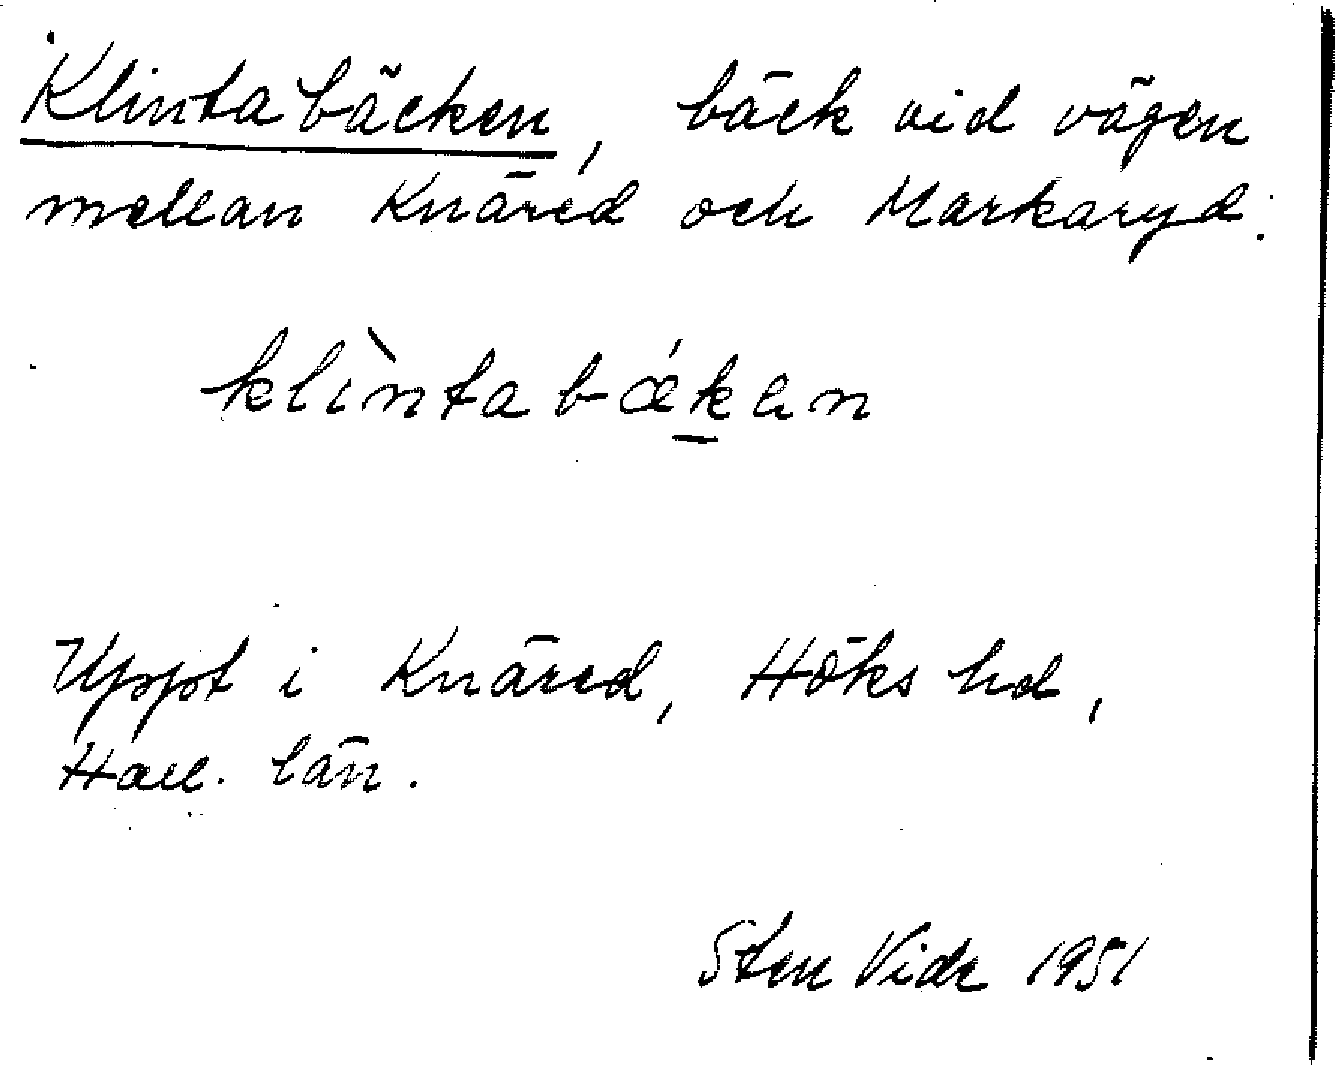 Klintabäcken, bäck vid vägen
mellan Knäred och Markaryd.
klìntabǽkən
Uppt i Knäred, Höks hd,
Hall. län.
Sten Vide 1951